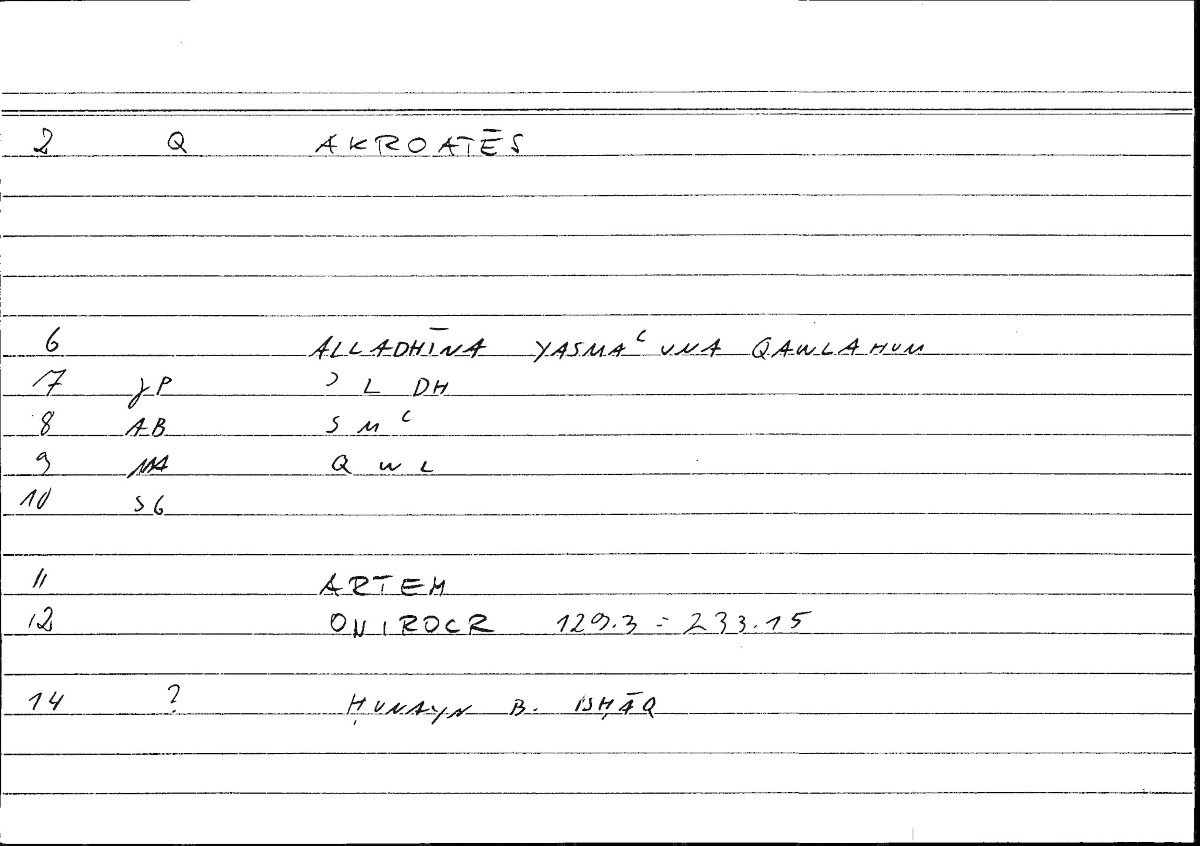 2 Q AKROATĒS
6 ALLADHĪNA YASMAʿUNA QAWLAHUM
7 JP ʾ L DH
8 AB S M ʿ
9 MA Q W L
10 SG
11 ARTEM
12 ONIROCR 129.3 = 233.15
14 ? ḤUNAYN B. ISḤĀQ